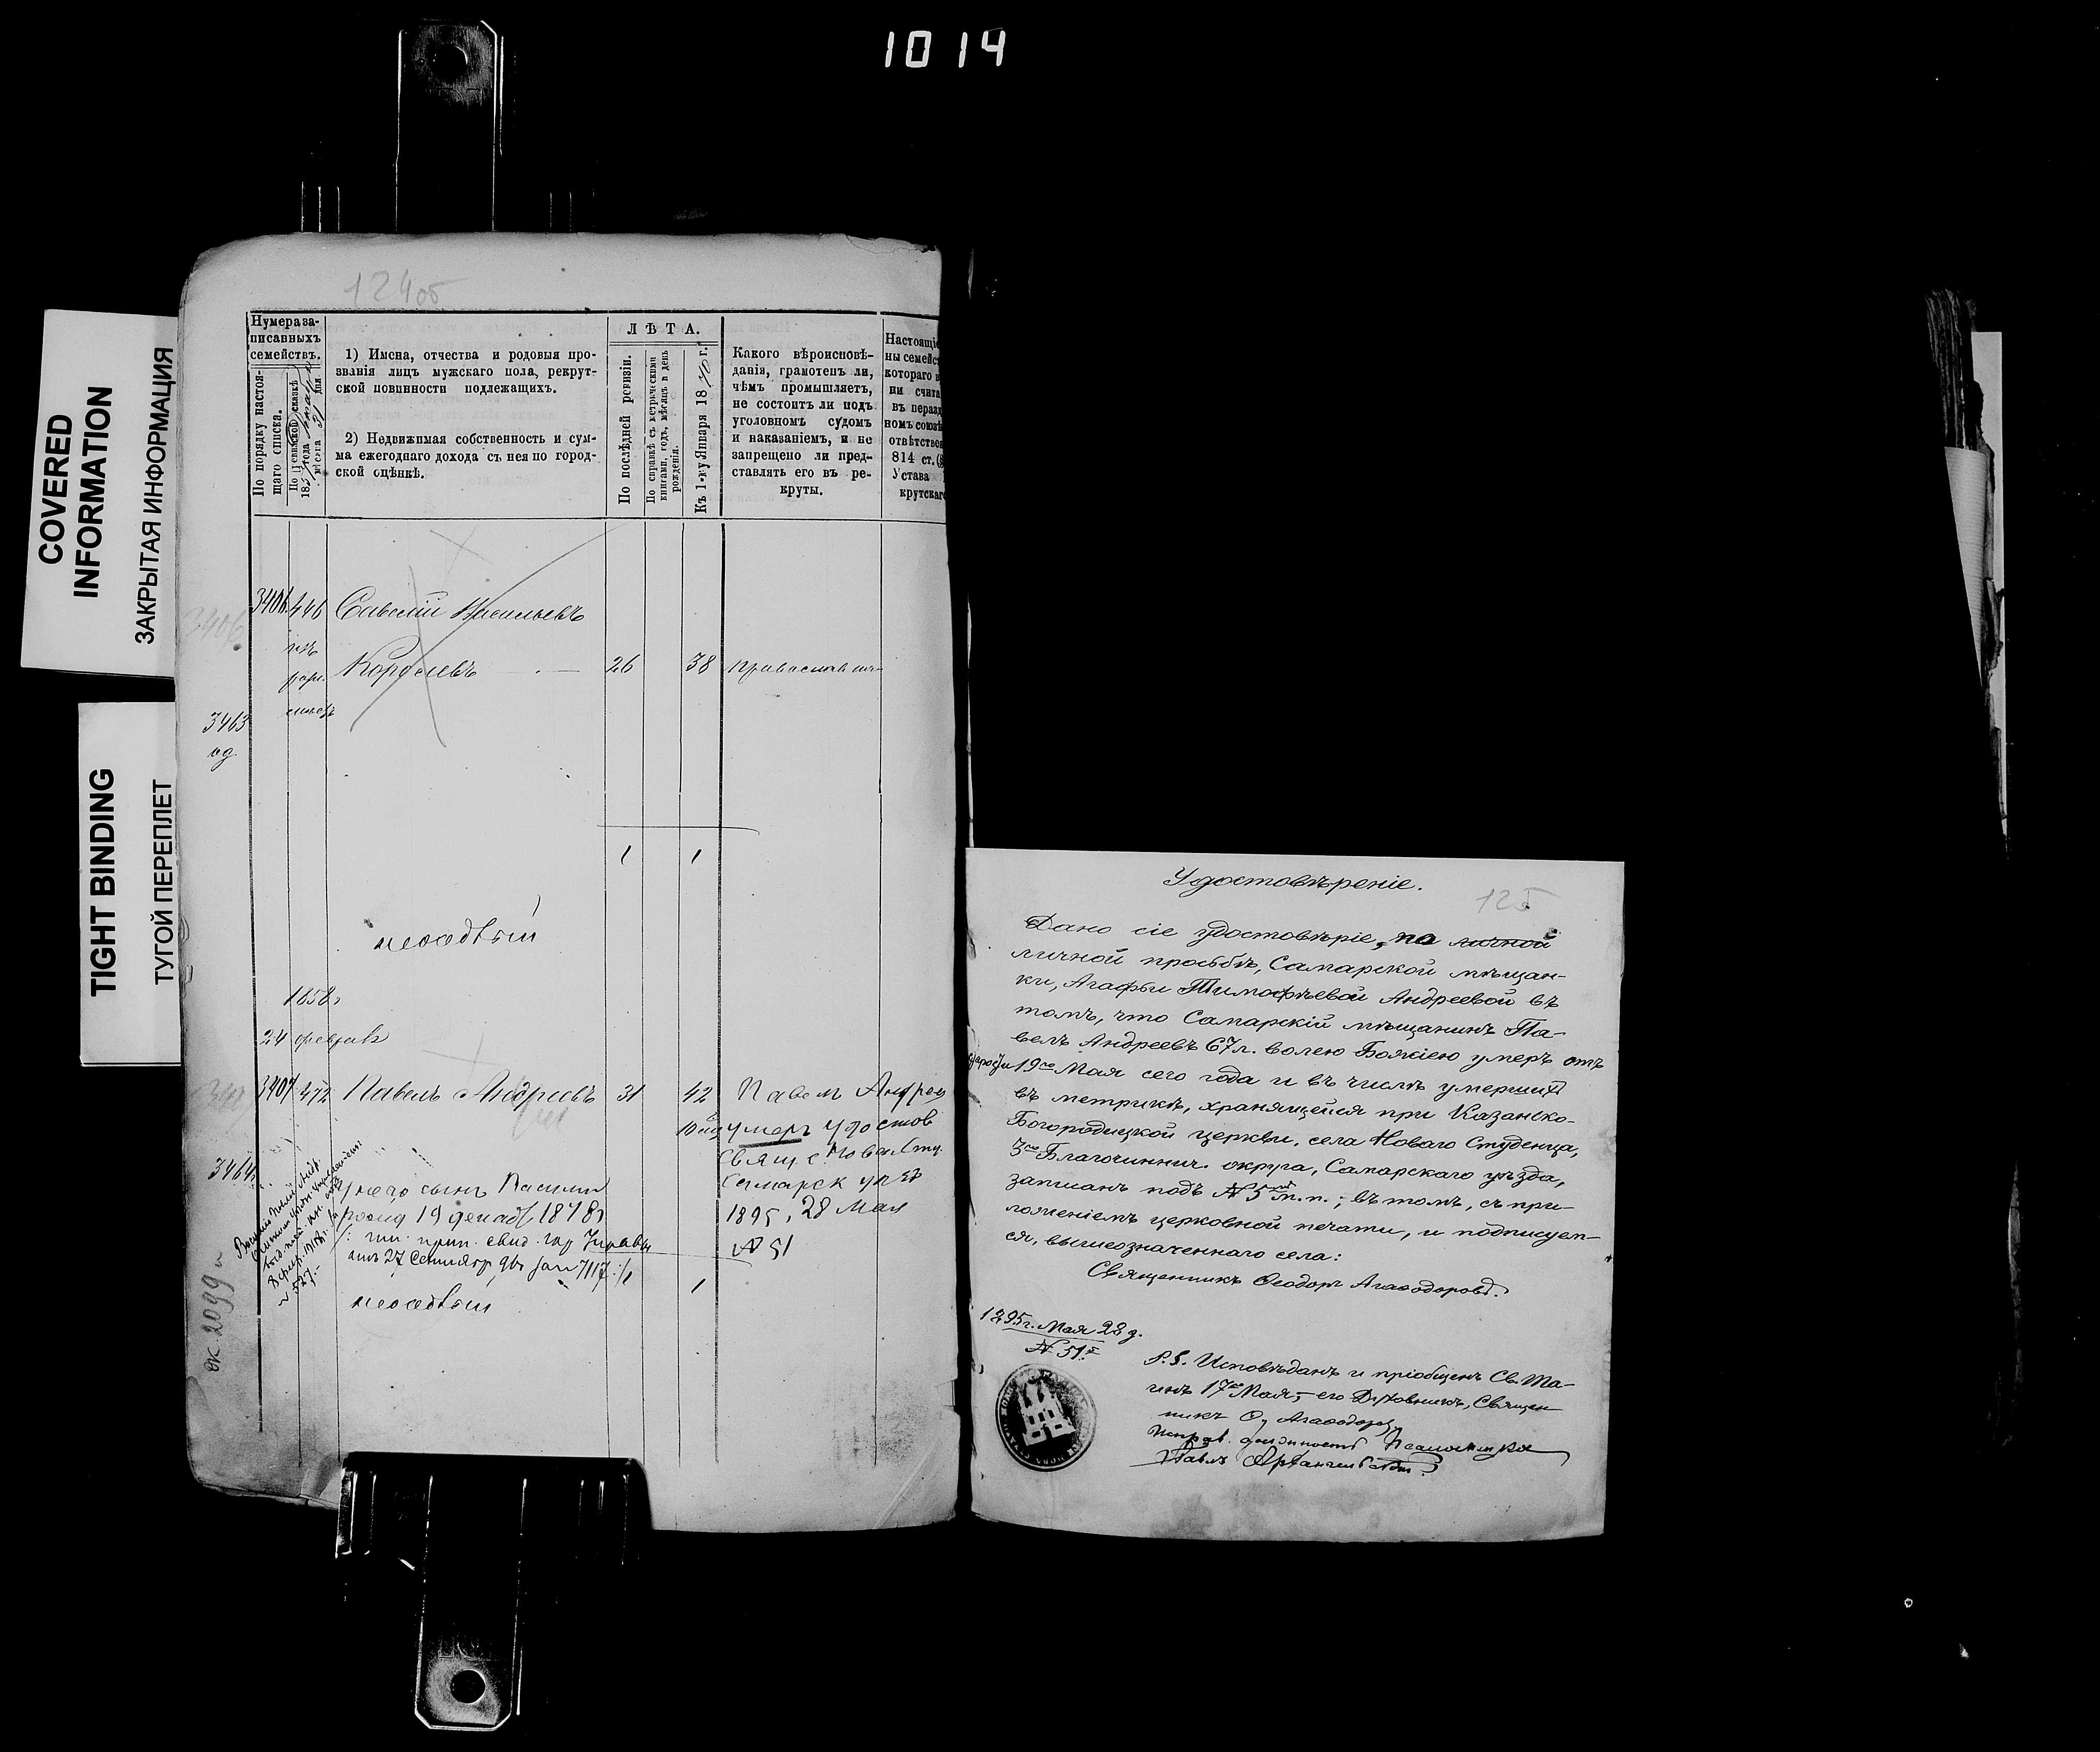 1014
COVERED
INFORMATION
ЗАКРЫТАЯ ИНФОРМАЦИЯ
TIGHT BINDING
ТУГОЙ ПЕРЕПЛЕТ
124об
Нумера за-
писанныхъ
семействъ.
По порядку настоя-
щаго списка.
1) Имена, отчества и родовыя про-
званія лицъ мужскаго пола, рекрут-
ской повинности подлежащихъ.
2) Недвижимая собственность и сум-
ма ежегоднаго дохода съ нея по город-
ской оцѣнкѣ.
ЛѢТА.
По послѣдней ревизіи.
По справкѣ съ метрическими
книгами, годъ, мѣсяцъ и день
рожденія.
Къ 1-му Января 1870 г.
Какого вѣроисповѣ-
данія, грамотенъ ли,
чѣмъ промышляетъ,
не состоитъ ли подъ
уголовнымъ судомъ
и наказаніемъ, и не
запрещено ли пред-
ставлять его въ ре-
круты.
Настоящіе
ны семейс
котораго
ни счита
въ нераз
номъ союз
отвѣтстве
814 ст.
Устава
крутскаг
3406
3406 446 Савелій Васильевъ
изъ
Королевъ 26 38 православн
3463
1 1
неосѣдлый
1858
24 февраля
3407 472 Павелъ Андреевъ 31 42 Павел Андрее
умеръ удостов
Свящ. с. Новая Сту.
Самарск уѣз
1895, 28 Мая
№ 51
3464
у него сынъ Василій
рожд 19 декаб 1878
от 27 Сентябр 96 за № 7117
1
неосѣдлый
ок 2099
Удостовѣреніе.
125
Дано сіе удостовѣріе, по личной
личной просьбѣ, Самарской мѣщан-
ки, Агафьи Тимофѣевой Андреевой въ
томъ, что Самарскій мѣщанинъ Па-
велъ Андреевъ 67 л. волею Божіею умеръ отъ
старости 19го Мая сего года и въ числѣ умершихъ
въ метрикѣ, хранящейся при Казанско-
Богородицкой церкви, села Новаго Студенца,
3го Благочиннич. округа, Самарскаго уѣзда,
записанъ подъ № 5 м. п.; въ томъ, съ при-
ложеніемъ церковной печати, и подписует-
ся, вышеозначеннаго села:
Священникъ Ѳеодоръ Агаѳодоровъ.
1895 г. Мая 28 д.
№ 51й
P.S. Исповѣданъ и пріобщенъ Св. Та-
инъ 17го Мая, его Духовникъ, Священ
никъ Ѳ. Агаѳодоровъ
Исправ. должность Псаломщика
Павелъ Архангельскій.